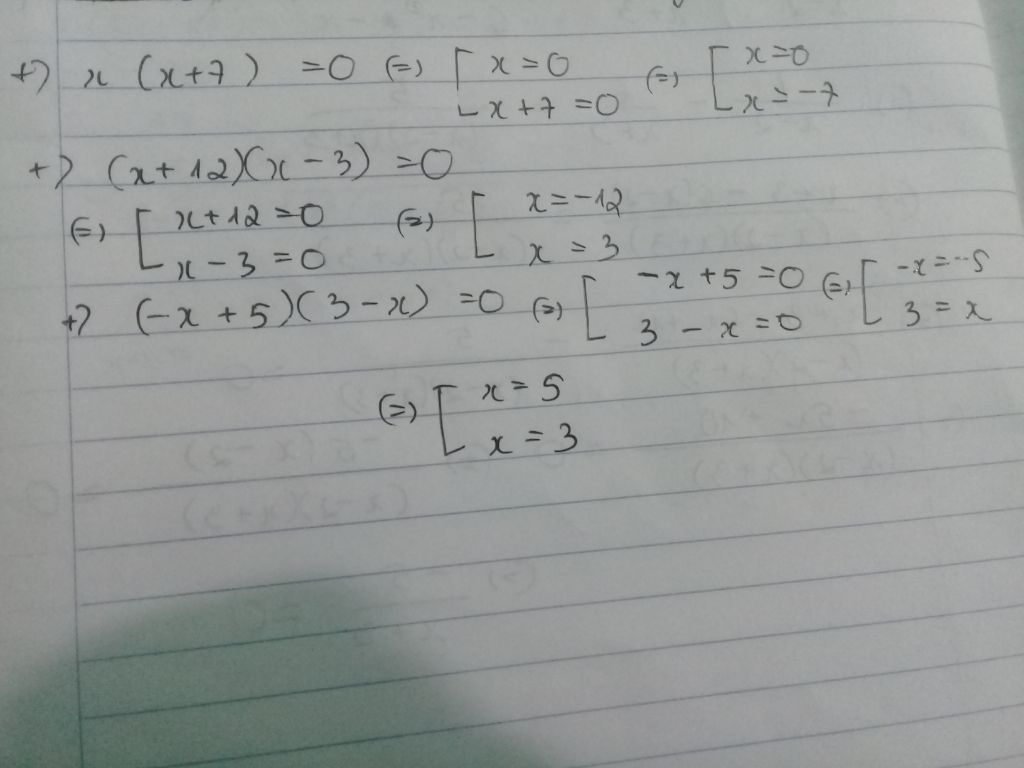 +) x (x+7) =0 (=) [ x=0 x+7=0 (=) [ x=0 x=-7
+) (x+12)(x-3) =0
(=) [ x+12=0 x-3=0 (=) [ x=-12 x=3
+) (-x+5)(3-x) =0 (=) [ -x+5=0 3-x=0 (=) [ -x=-5 3=x
(=) [ x=5 x=3